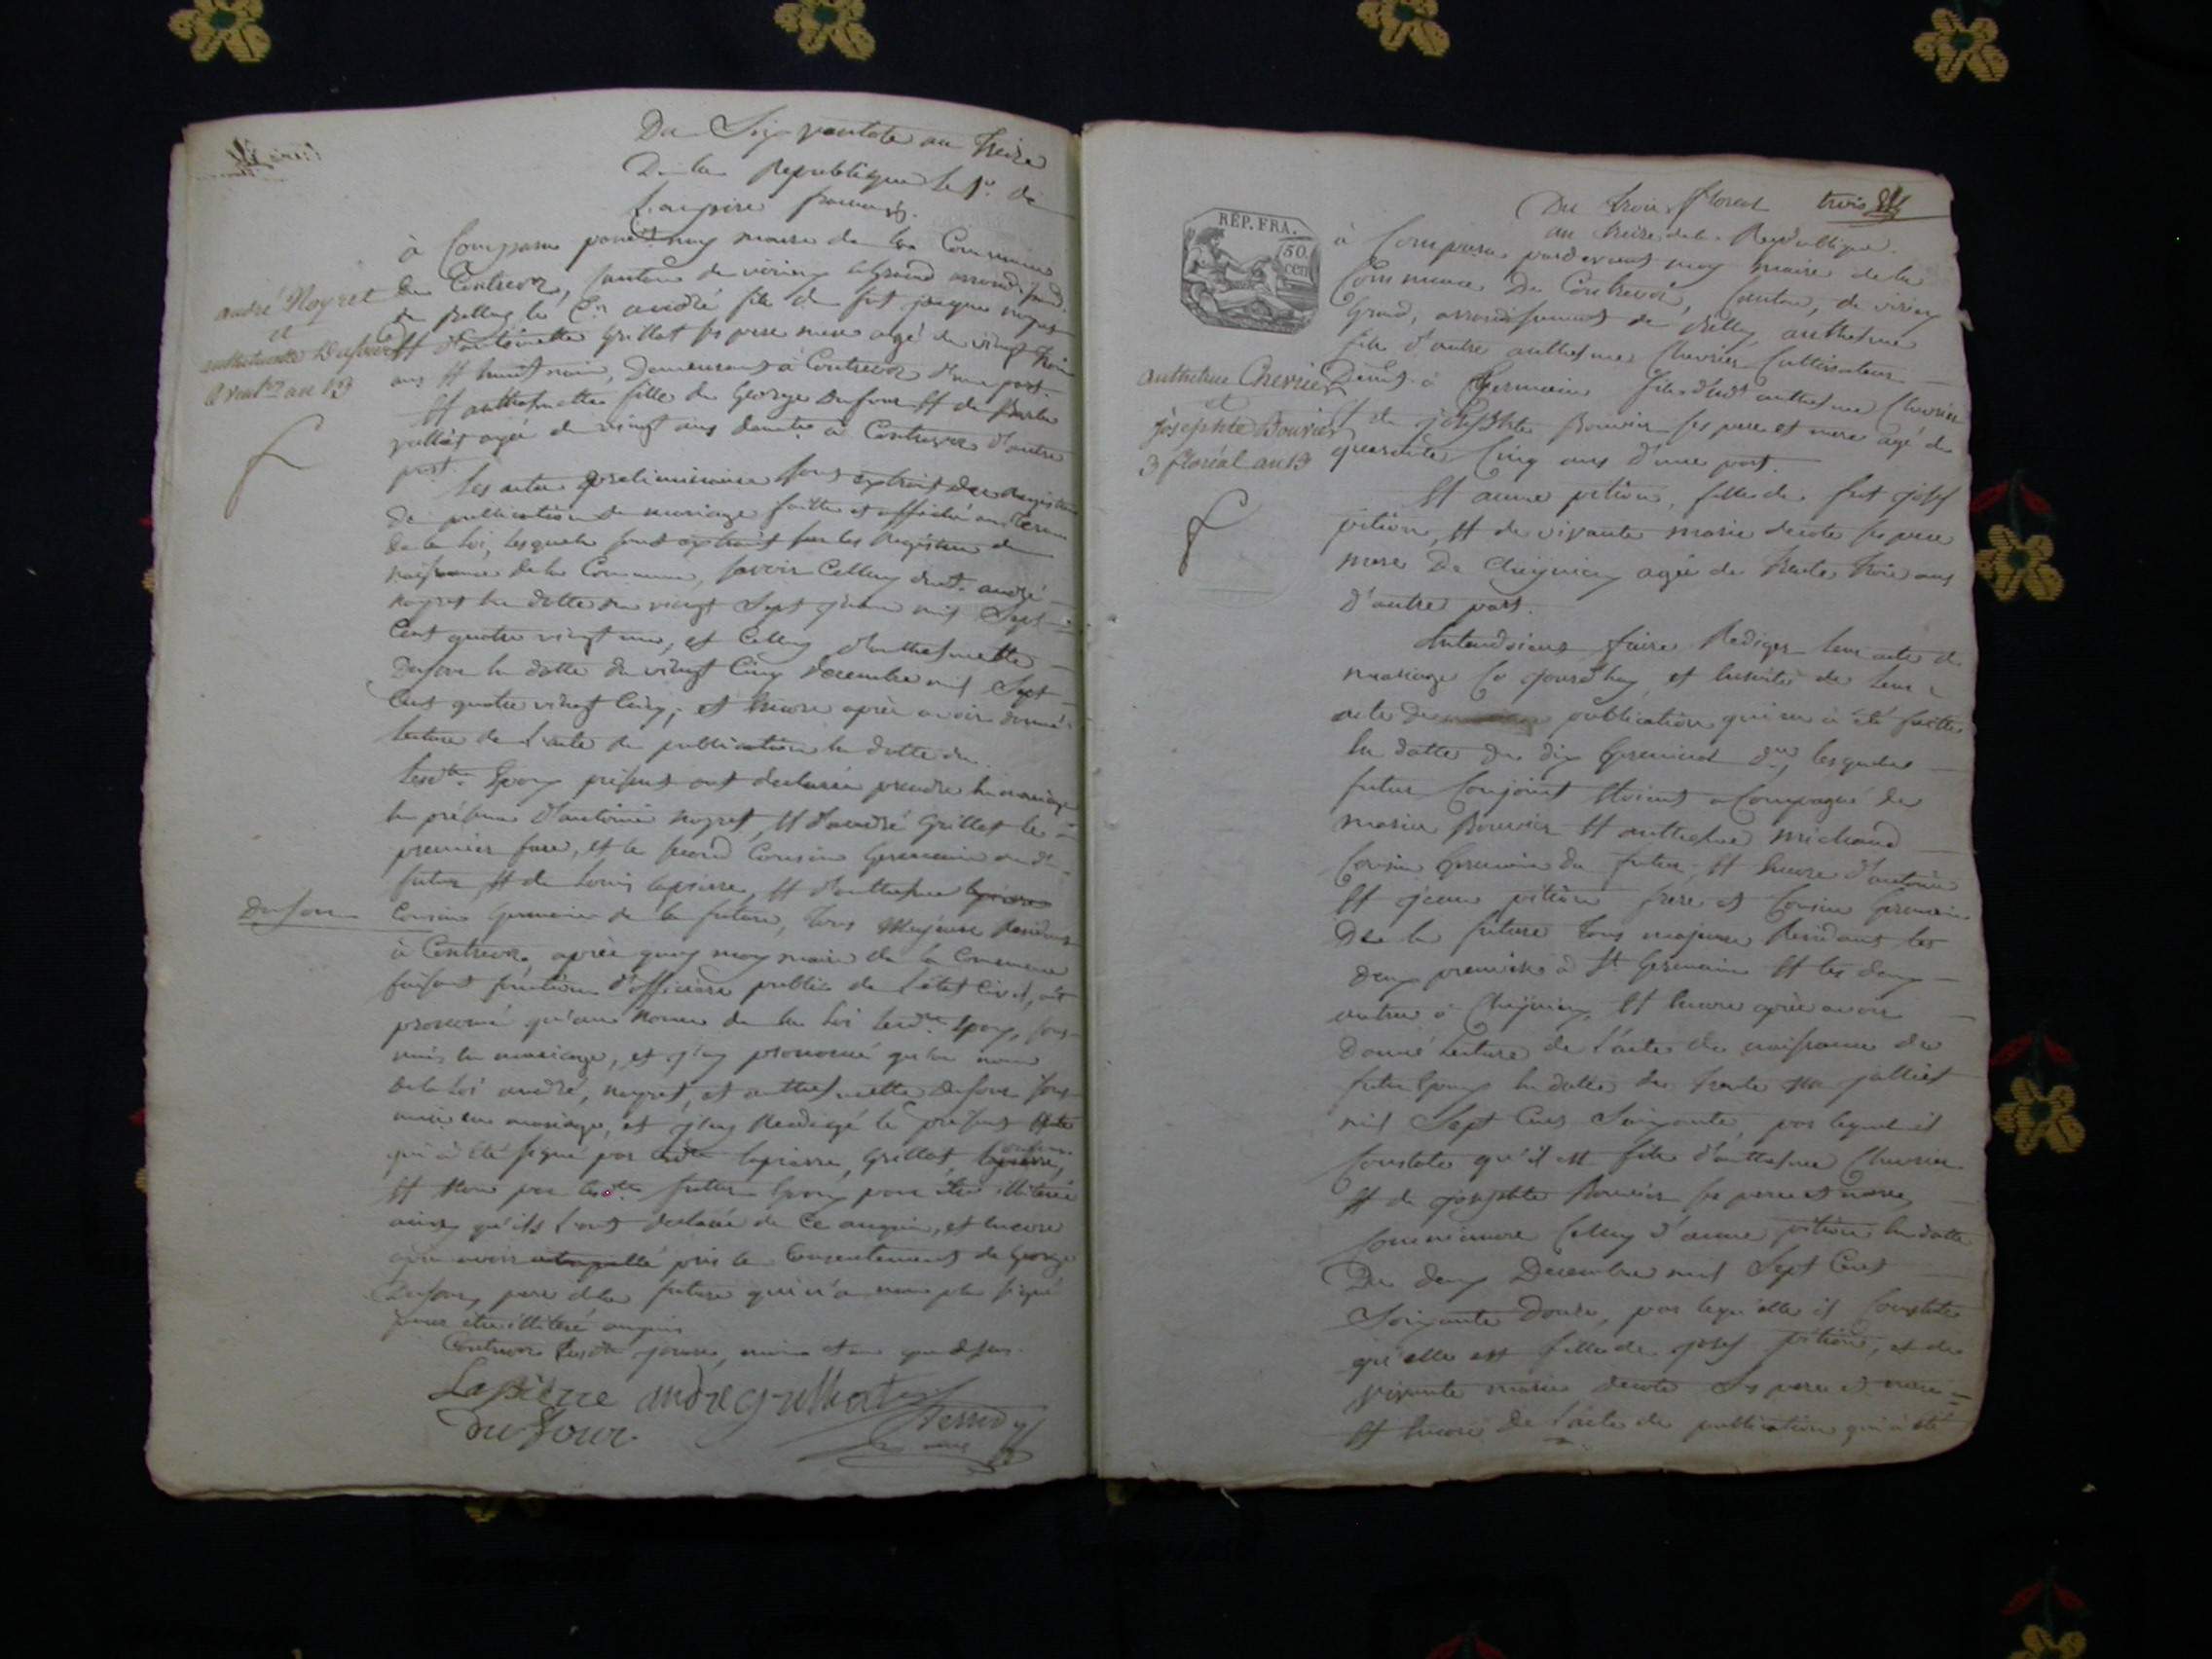 Du Six vantose an Treize
De la Republique le 1er de
L'ampire francais.
à Comparu pardt moy maire de la Commune
De Contrevoz, Canton de virieu legrand arrond.
de Belley le Cn andré fils de fut jacque noyret
Et d'antoinette Grillot ses pere mere agé de vingt trois
ans Et huit mois, Demeurant à Contrevoz d'une part.
Et anthelmette fille de George Dufour Et de
agée de vingt ans demte à Contrevoz d'autre
part.
Les actes preliminaires sont extrait des Registres
de publication de mariage faitte et affiché aux termes
de la loi, lesquels sont extrait sur les Registres de
naissance de la Commune, savoir Celluy dudt andré
noyret en datte du vingt Sept mil Sept
Cent quatre vingt un, et Celluy d'anthelmette
Dufour en datte du vingt Cinq decembre mil Sept
Cent quatre vingt Cinq; et encore après avoir donné
lecture de l'acte de publication en datte du
lesdts Epoux present ont declarée prendre en mariage
en présence d'antoine noyret, Et d'andré Grillot le
premier frere, et le second Cousin Germain dudt
futur Et de Louis lapierre, Et d'anthelme lapierre
Cousin Germain de la future, tous Majeurs Residant
à Contrevoz, après quoy moy maire de la Commune
faisant fonction d'officiere public de l'état Civil, ait
prononcé qu'au Nom de la loi lesdts Epoux, sont
unis en mariage, et j'ay prononcé qu'au nom
de la loi andré, noyret, et anthelmette dufour sont
unis en mariage, et j'ay Redigé le present Acte
qui à été signé par lapierre, Grillot, lapierre, dufour
Et Non par lesdts futur Epoux pour être illiteré
ainsy qu'ils l'ont declarée de Ce anquis, et encore
après avoir pris le Consentement de George
Dufour, pere de la future qui n'a non plus signé
pour être illiteré anquis
Contrevoz lesdts jours, mois et an que dessus.
Lapierre andre grillot
Dufour
andré Noyret
et
anthelmette Dufour
6 ventse an 13
Dufour
trois
Du trois floreal
an treize de la Republique.
RÉP. FRA.
50 cen
à Comparu pardevant moy maire de la
Commune De Contrevoz, Canton, de virieu
Grand, arrondissement de Belley, anthelme
fils d'autre anthelme Chevrier Cultivateur
Demt à St Germain fils dudt anthelme Chevrier
Et de josephte Bouvier ses pere et mere agé de
quarante Cinq ans d'une part.
Et anne pition, fille de fut josef
pition, Et de vivante marie decote ses pere
mere De Cheignieu agée de trente trois ans
d'autre part.
Entendoient faire Rediger leur acte de
mariage Ce jourd'huy et ensuite de leur
acte de publication qui en à été faitte
en datte du dix Germinal dr, lesquels
futur Conjoint Etoient acCompagné de
marin Bouvier Et anthelme michaud
Cousin Germain du futur Et encore d'antoine
Et jean pition frere et Cousin Germain
De la future tous majeurs Residant les
deux premiers à St Germain Et les deux
autres à Cheignieu, Et encore après avoir
donné lecture de l'acte de naissance du
futur Epoux en datte du trente un julliet
mil Sept Cent Soixante, par lequel il
Constate qu'il est fils d'anthelme Chevrier
Et de josephte Bouvier ses pere et mere,
Comme encore Celluy d'anne pition en datte
Du deux Decembre mil Sept Cent
Soixante Douze, par lequ'elle il Constate
qu'elle est fille de josef pition, et de
vivante marie decote ses pere et mere
Et encore de l'acte de publication qui à été
anthelme Chevrier
et
josephte Bouvier
3 floréal an 13